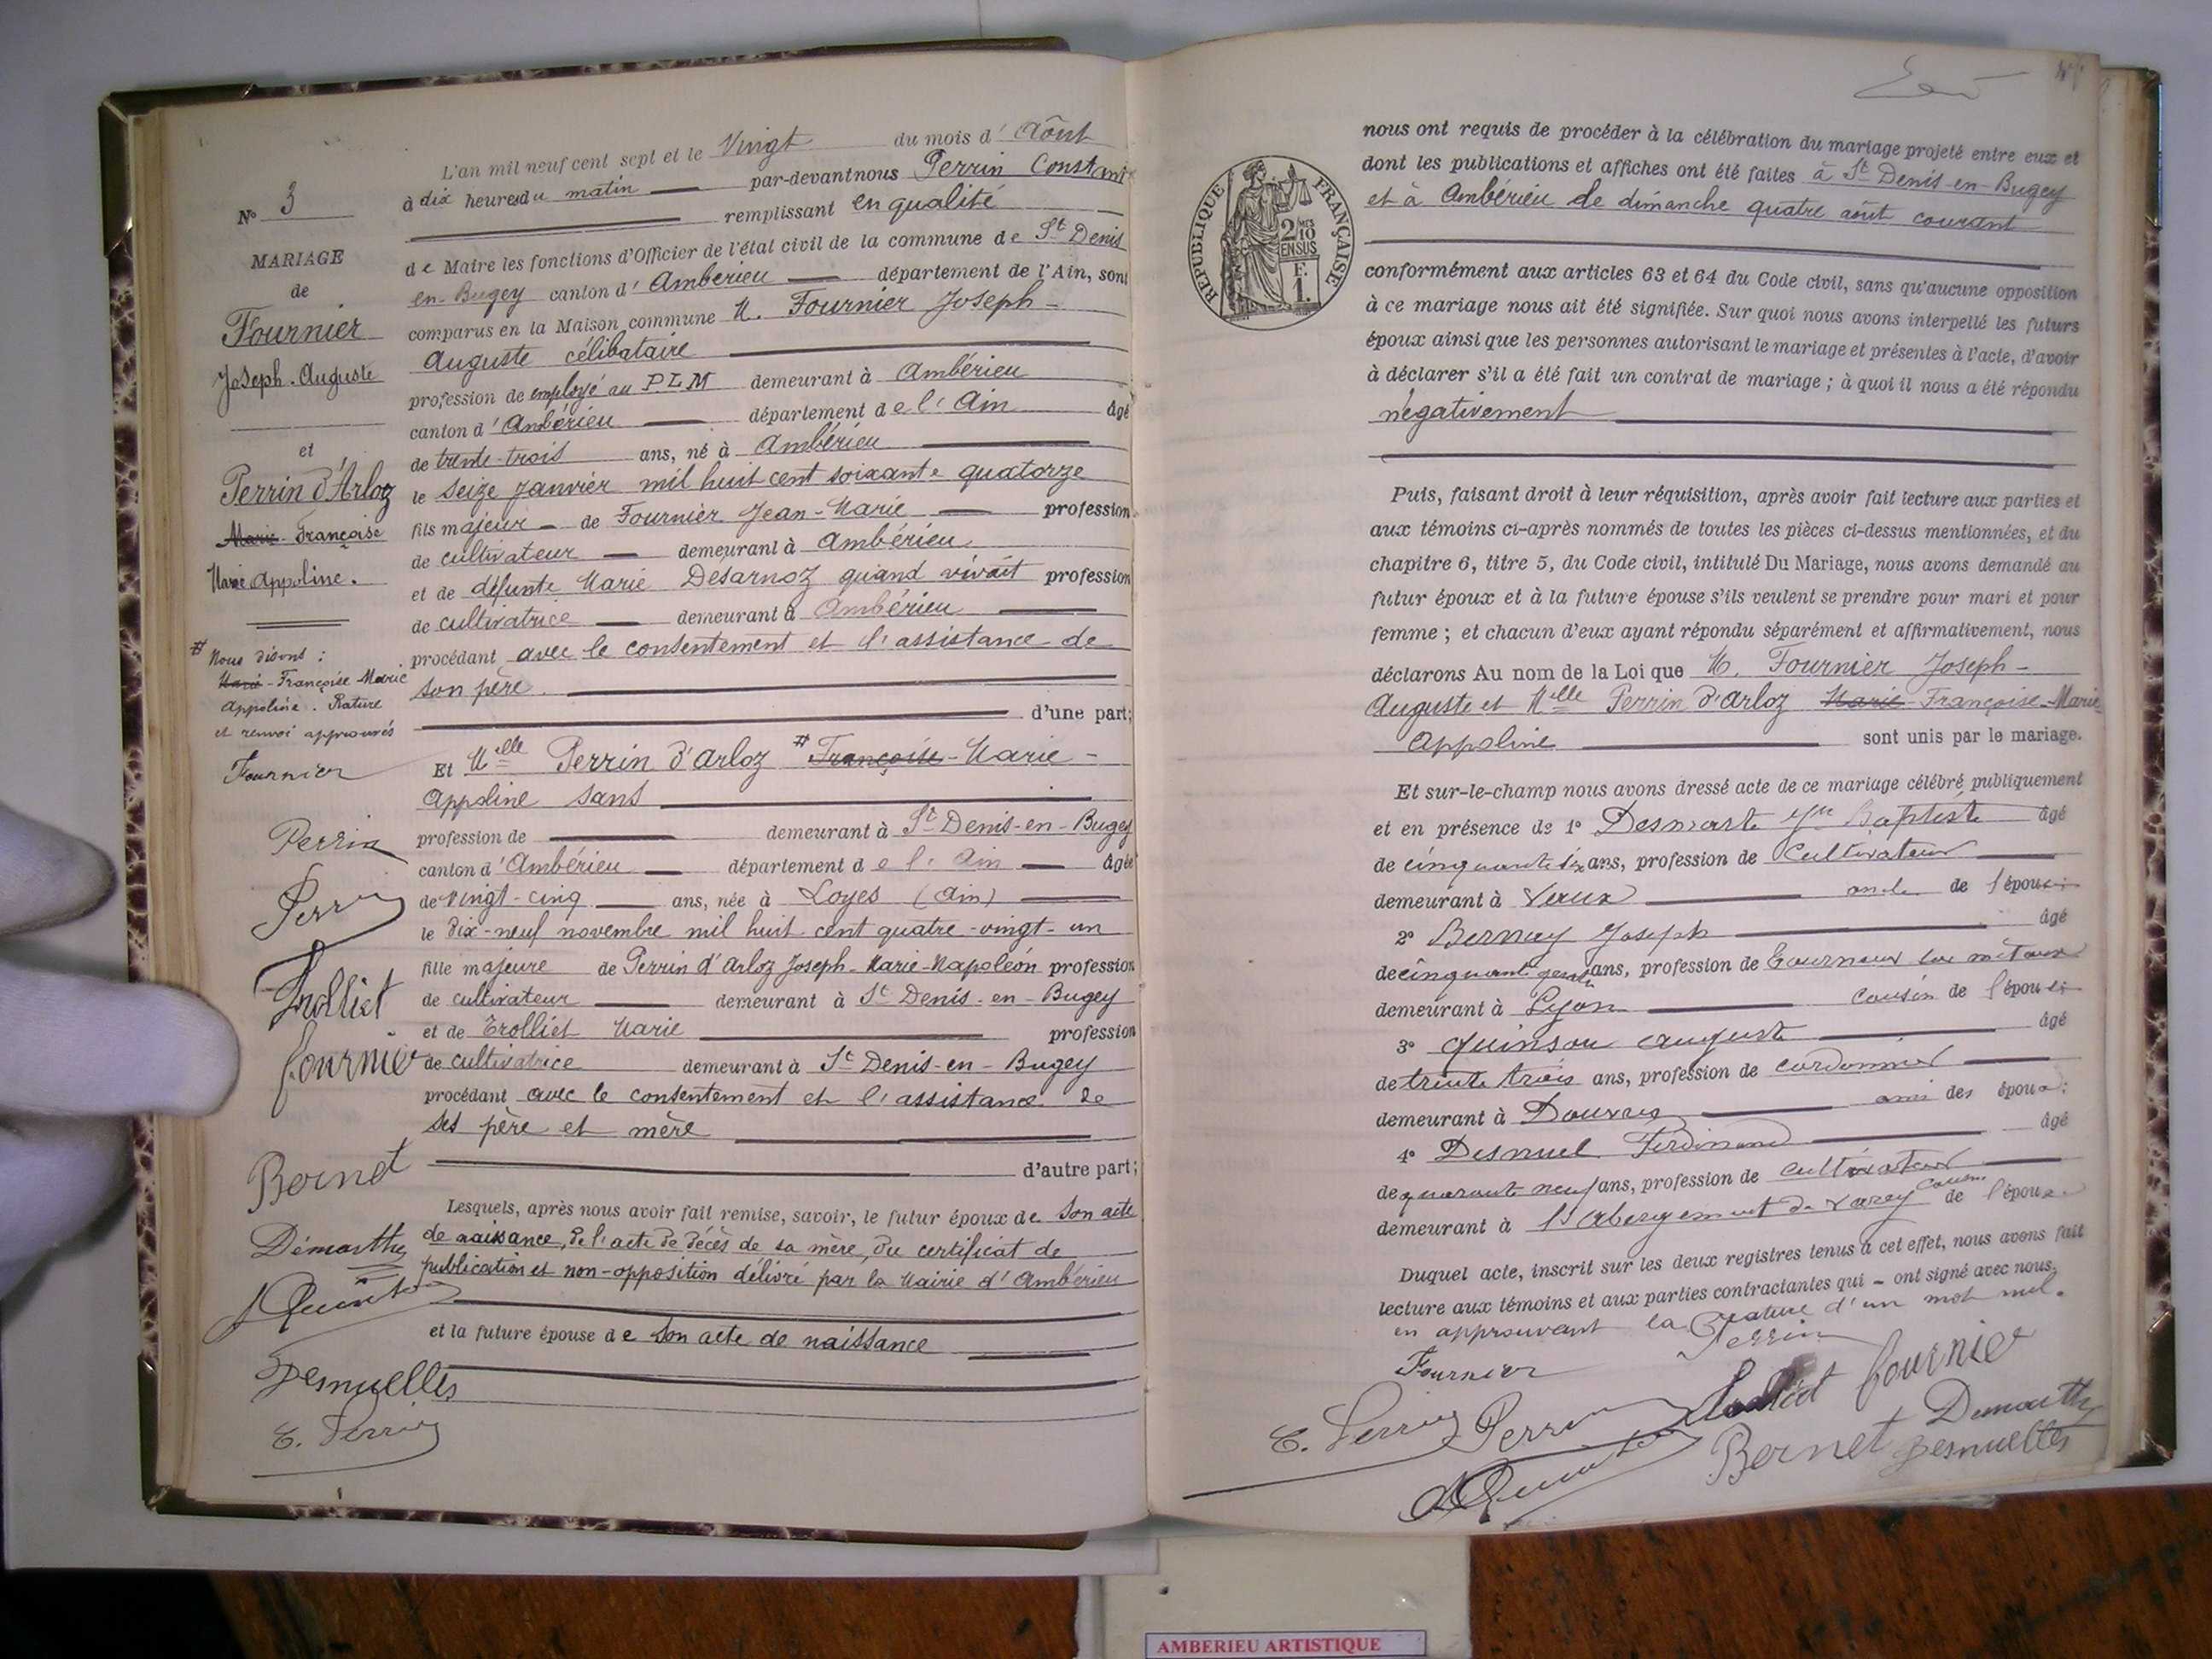 L'an mil neuf cent sept et le Vingt du mois d' Aôut
à dix heures du matin par-devant nous Perrin Constant
remplissant en qualité
de Maire les fonctions d'Officier de l'état civil de la commune de St Denis
en-Bugey canton d' Ambérieu département de l'Ain, sont
comparus en la Maison commune M. Fournier Joseph-
Auguste célibataire
profession de employé au PLM demeurant à Ambérieu
canton d' Ambérieu département de l'Ain âgé
de trente-trois ans, né à Ambérieu
le seize janvier mil huit cent soixante quatorze
fils majeur de Fournier Jean-Marie profession
de cultivateur demeurant à Ambérieu
et de défunte Marie Désarnoz quand vivait profession
de cultivatrice demeurant à Ambérieu
procédant avec le consentement et l'assistance de
son père.
d'une part;
Et Melle Perrin d'Arloz # Françoise-Marie-
Appoline sans
profession de demeurant à St Denis-en-Bugey
canton d' Ambérieu département de l'Ain âgée
de vingt-cinq ans, née à Loyes (Ain)
le dix-neuf novembre mil huit cent quatre-vingt-un
fille majeure de Perrin d'Arloz Joseph-Marie-Napoléon profession
de cultivateur demeurant à St Denis-en-Bugey
et de Trolliet Marie profession
de cultivatrice demeurant à St Denis-en-Bugey
procédant avec le consentement et l'assistance de
ses père et mère
d'autre part;
Lesquels, après nous avoir fait remise, savoir, le futur époux de son acte
de naissance, de l'acte de décès de sa mère, du certificat de
publication et non-opposition délivré par la Mairie d'Ambérieu
et la future épouse de son acte de naissance
No 3
MARIAGE
de
Fournier
Joseph-Auguste
et
Perrin d'Arloz
Marie-Françoise
Marie Appoline.
# Nous disons:
Marie-Françoise-Marie
Appoline. Rature
et renvoi approuvés
Fournier
Perrin
Perrin
Trolliet
fournier
Bernet
Démarthe
Desnuelles
C. Perrin
RÉPUBLIQUE FRANÇAISE
2/10 EN SUS
F. 1.
nous ont requis de procéder à la célébration du mariage projeté entre eux et
dont les publications et affiches ont été faites à St Denis-en-Bugey
et à Ambérieu le dimanche quatre aôut courant
conformément aux articles 63 et 64 du Code civil, sans qu'aucune opposition
à ce mariage nous ait été signifiée. Sur quoi nous avons interpellé les futurs
époux ainsi que les personnes autorisant le mariage et présentes à l'acte, d'avoir
à déclarer s'il a été fait un contrat de mariage; à quoi il nous a été répondu
négativement
Puis, faisant droit à leur réquisition, après avoir fait lecture aux parties et
aux témoins ci-après nommés de toutes les pièces ci-dessus mentionnées, et du
chapitre 6, titre 5, du Code civil, intitulé Du Mariage, nous avons demandé au
futur époux et à la future épouse s'ils veulent se prendre pour mari et pour
femme; et chacun d'eux ayant répondu séparément et affirmativement, nous
déclarons Au nom de la Loi que M. Fournier Joseph-
Auguste et Melle Perrin d'Arloz Marie-Françoise-Marie
Appoline sont unis par le mariage.
Et sur-le-champ nous avons dressé acte de ce mariage célébré publiquement
et en présence de 1° Baptiste âgé
de cinquante six ans, profession de Cultivateur
demeurant à Vaux oncle de l'épouse
2° Joseph âgé
de cinquante ans, profession de Tourneur sur métaux
demeurant à Lyon cousin de l'épouse
3° Quinson Auguste âgé
de trente trois ans, profession de cordonnier
demeurant à Douvres ami des époux
4° Ferdinand âgé
de quarante neuf ans, profession de cultivateur
demeurant à l'Abergement de Varey cousin de l'épouse
Duquel acte, inscrit sur les deux registres tenus à cet effet, nous avons fait
lecture aux témoins et aux parties contractantes qui - ont signé avec nous.
en approuvant la rature d'un mot nul.
Perrin
Fournier
Trolliet fournier
C. Perrin Perrin
Démarthe
Bernet Desnuelles
AMBERIEU ARTISTIQUE